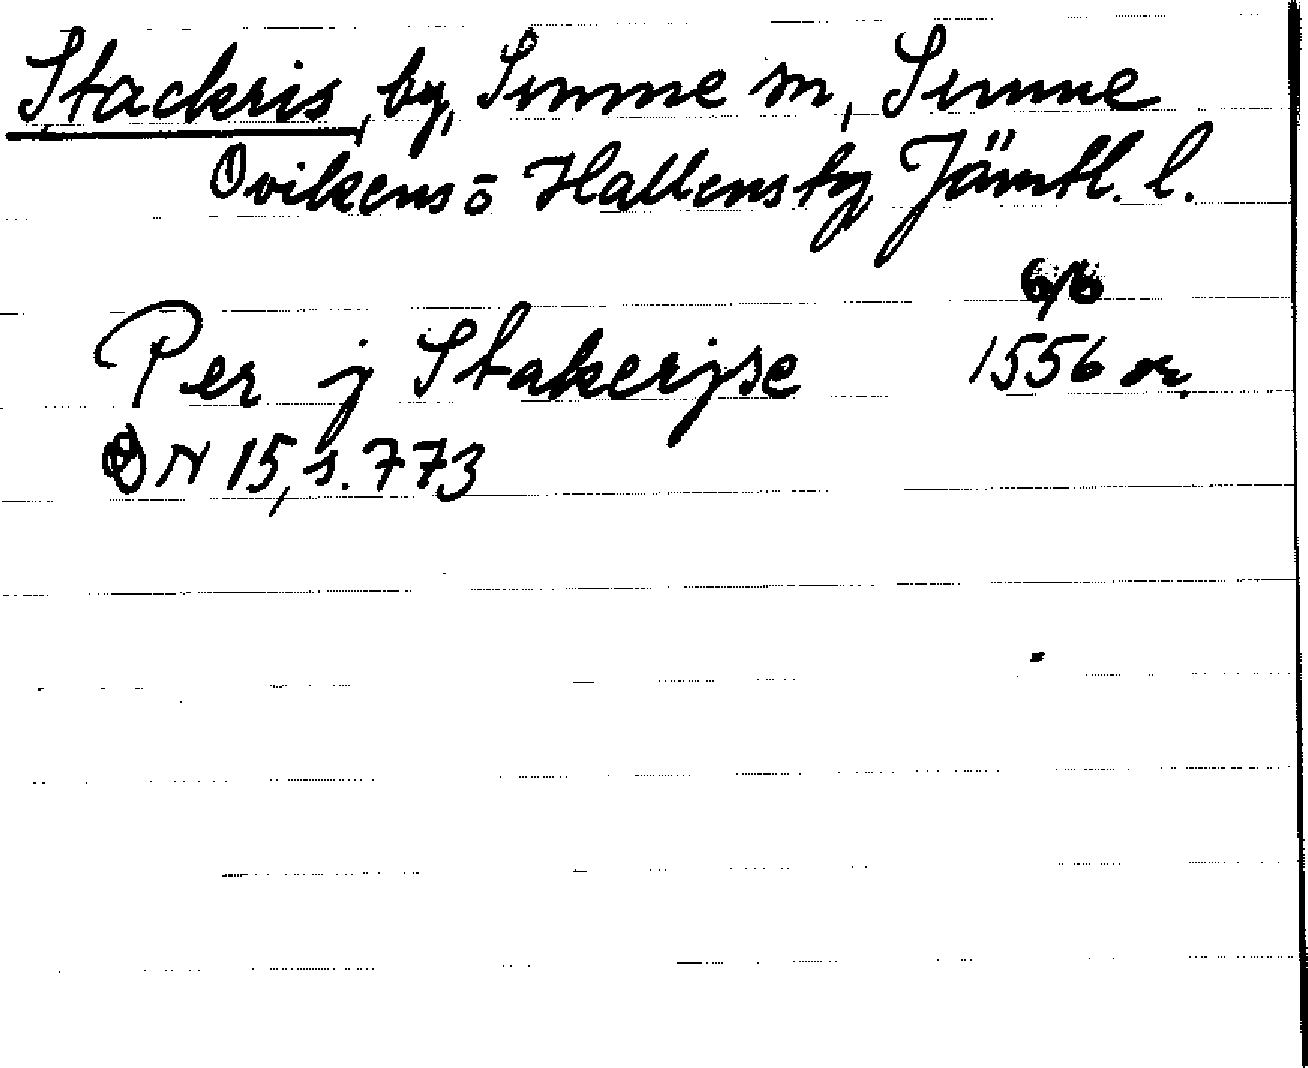 Stackris, by, Sunne sn, Sunne
Ovikens o Hallens tg Jämtl. l.
6/6
Per j Stakerjse 1556 or.
DN 15, s. 773